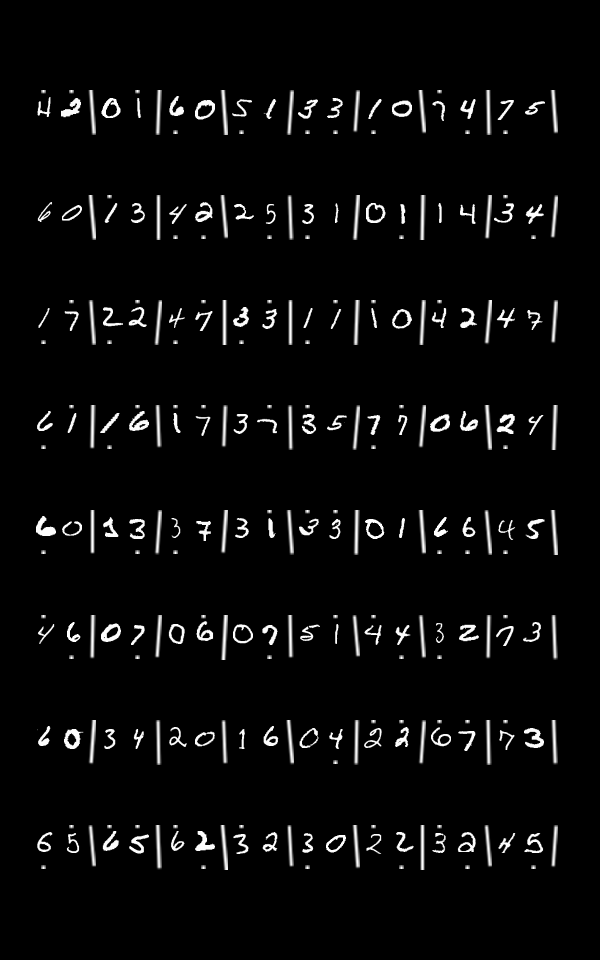 4 2 | 0 1 | 6 0 | 5 1 | 3 3 | 1 0 | 7 4 | 7 5 |
6 0 | 1 3 | 4 2 | 2 5 | 3 1 | 0 1 | 1 4 | 3 4 |
1 7 | 2 2 | 4 7 | 3 3 | 1 1 | 1 0 | 4 2 | 4 7 |
6 1 | 1 6 | 1 7 | 3 7 | 3 5 | 7 7 | 0 6 | 2 4 |
6 0 | 1 3 | 3 7 | 3 1 | 3 3 | 0 1 | 6 6 | 4 5 |
4 6 | 0 7 | 0 6 | 0 7 | 5 1 | 4 4 | 3 2 | 7 3 |
6 0 | 3 4 | 2 0 | 1 6 | 0 4 | 2 2 | 6 7 | 7 3 |
6 5 | 6 5 | 6 2 | 3 2 | 3 0 | 2 2 | 3 2 | 4 5 |